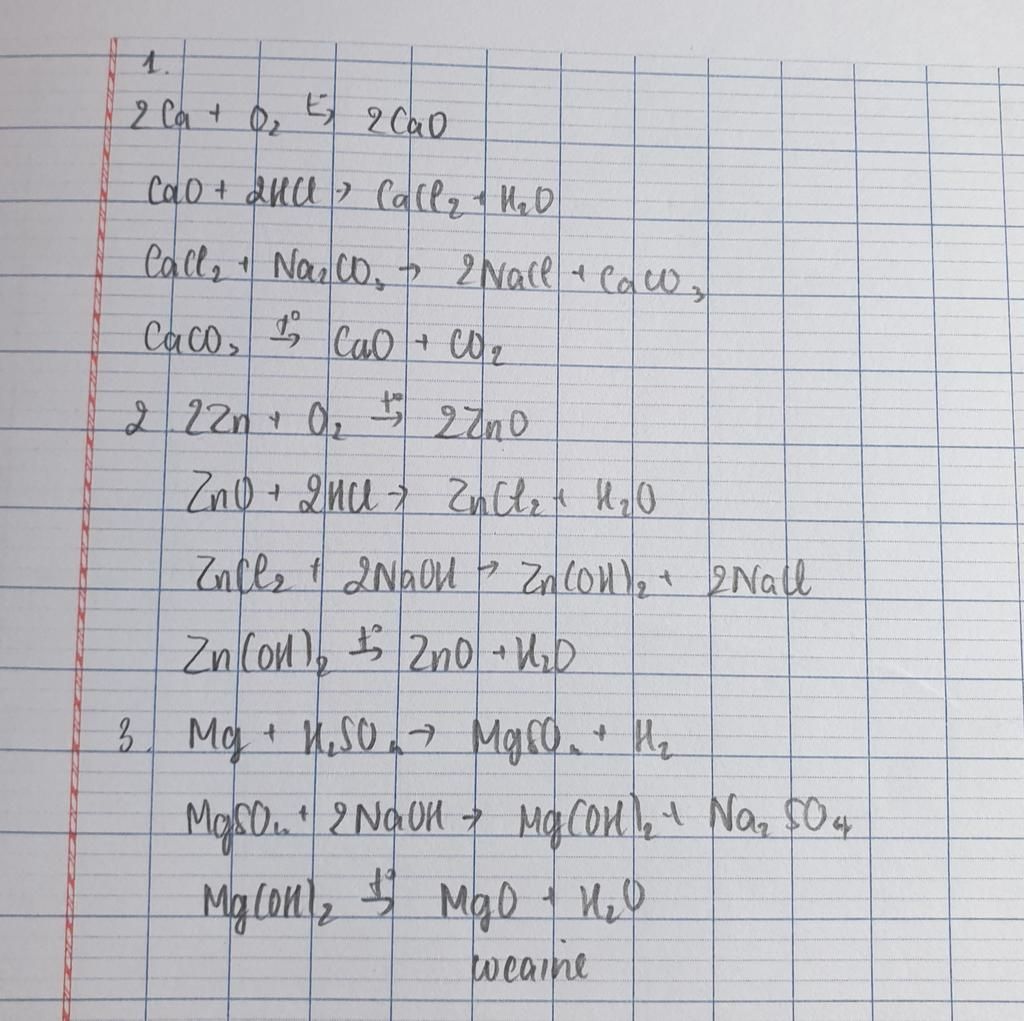 1.
2Ca + O₂ t°→ 2CaO
CaO + 2HCl → CaCl₂ + H₂O
CaCl₂ + Na₂CO₃ → 2NaCl + CaCO₃
CaCO₃ t°→ CaO + CO₂
2 2Zn + O₂ t°→ 2ZnO
ZnO + 2HCl → ZnCl₂ + H₂O
ZnCl₂ + 2NaOH → Zn(OH)₂ + 2NaCl
Zn(OH)₂ t°→ ZnO + H₂O
3. Mg + H₂SO₄ → MgSO₄ + H₂
MgSO₄ + 2NaOH → Mg(OH)₂ + Na₂SO₄
Mg(OH)₂ t°→ MgO + H₂O
cocaine